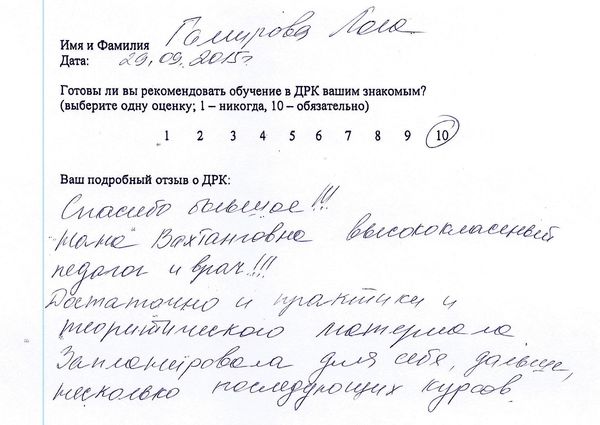 Имя и Фамилия Гамирова Лола
Дата: 29.09.2015г
Готовы ли вы рекомендовать обучение в ДРК вашим знакомым?
(выберите одну оценку; 1 – никогда, 10 – обязательно)
1 2 3 4 5 6 7 8 9 10
Ваш подробный отзыв о ДРК:
Спасибо большое!!!
Нана Вахтанговна высококласный
педагог и врач!!!
Достаточно и практики и
теоритического материала
Запланировала для себя, дальше,
несколько последующих курсов.